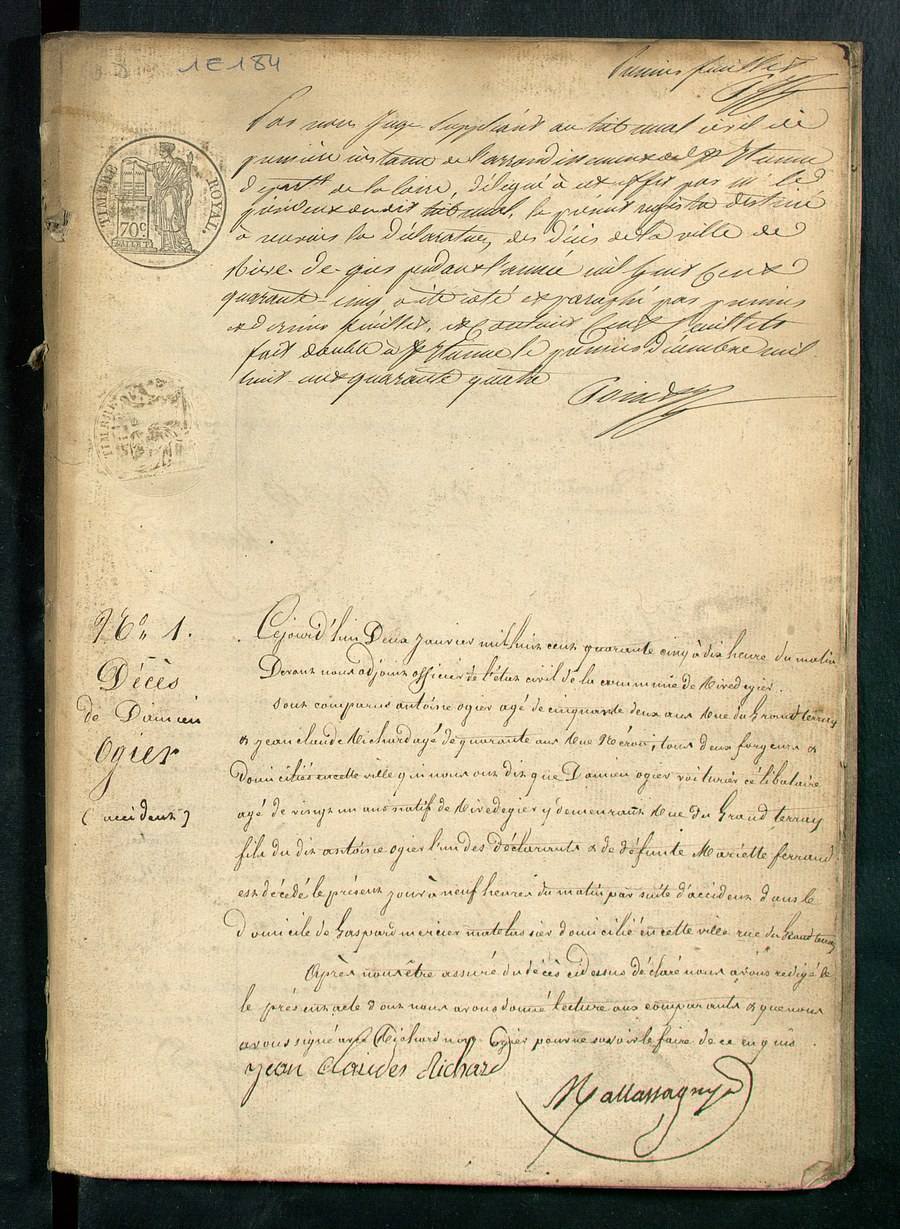 1E184
Premier feuillet
TIMBRE ROYAL
70c.
Par nous Juge Suppléant au tribunal civil de
première instance de l'arrondissement de St Etienne
départt de la Loire, délégué à cet effet par Mr le
président dudit tribunal, le présent registre destiné
à recevoir les déclarations des décès de la ville de
Rive-de-gier pendant l'année mil huit cent
quarante-cinq a été coté et paraphé par premier
et dernier feuillet, et contient Cent feuillets
fait double à St Etienne le premier décembre mil
huit-cent quarante quatre
TIMBRE
No. 1.
Décès
de Damien
Ogier
(accident)
Cejourd'hui Deux janvier mil huit cent quarante cinq à dix heure du matin
Devant nous adjoint officier de l'état civil de la commune de Rivedegier.
sont comparus antoine ogier agé de cinquante deux ans Rue du Grand terray
& jean claude Richard agé de quarante ans Rue, tous deux forgeurs &
Domiciliés en cette ville qui nous ont dit que Damien ogier voiturier célibataire
agé de vingt un ans natif de Rivedegier y demeurant Rue du Grand terray
fils du dit antoine ogier l'un des déclarants & de défunte Mariette ferrand
est décédé le présent jour à neuf heures du matin par suite d'accident dans le
Domicile de Gaspard mercier matelassier domicilié en cette ville rue du Grand terray
Après nous être assuré du décès cidessus déclaré nous avons redigé
le présent acte dont nous avons donné lecture aux comparants & que nous
avons signé avec Richard non Ogier pour ne savoir le faire de ce enquis.
jean Claudes Richard
Mallassagny